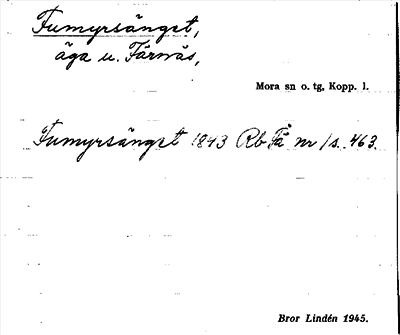 Fumyrsänget,
äga u. Färnäs,
Mora sn o. tg, Kopp. l.
Fumyrsänget 1843 Rb Få nr 1 s. 463.
Bror Lindén 1945.